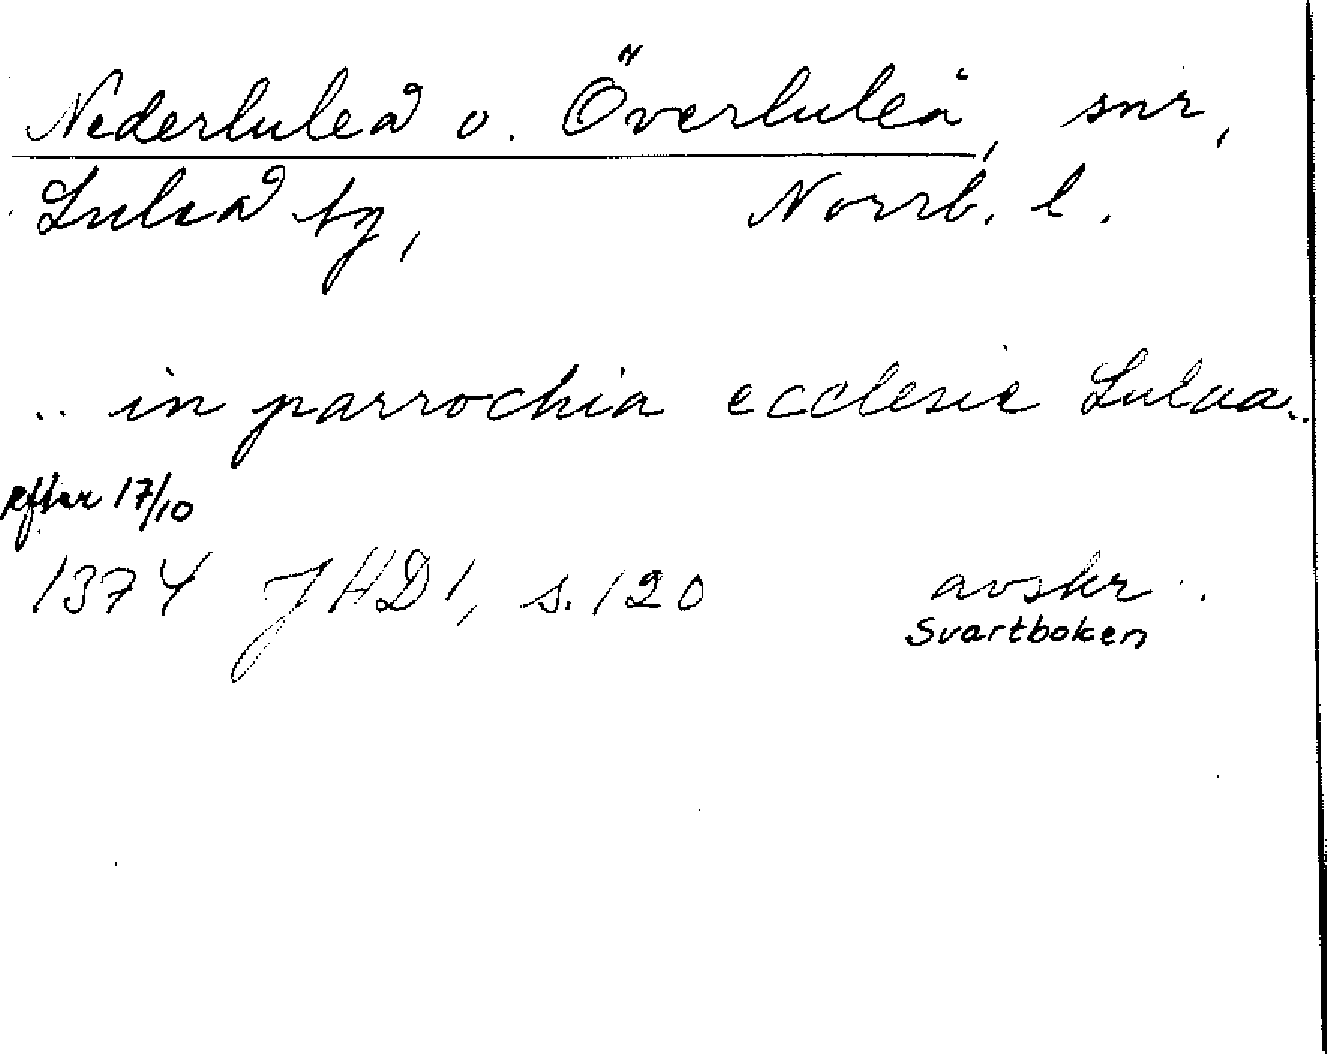 Nederluleå o. Överluleå, snr,
Luleå tg, Norrb. l.
.. in parrochia ecclesie Lulaa..
efter 17/10
1374 JHD 1, s. 120 avskr.
Svartboken